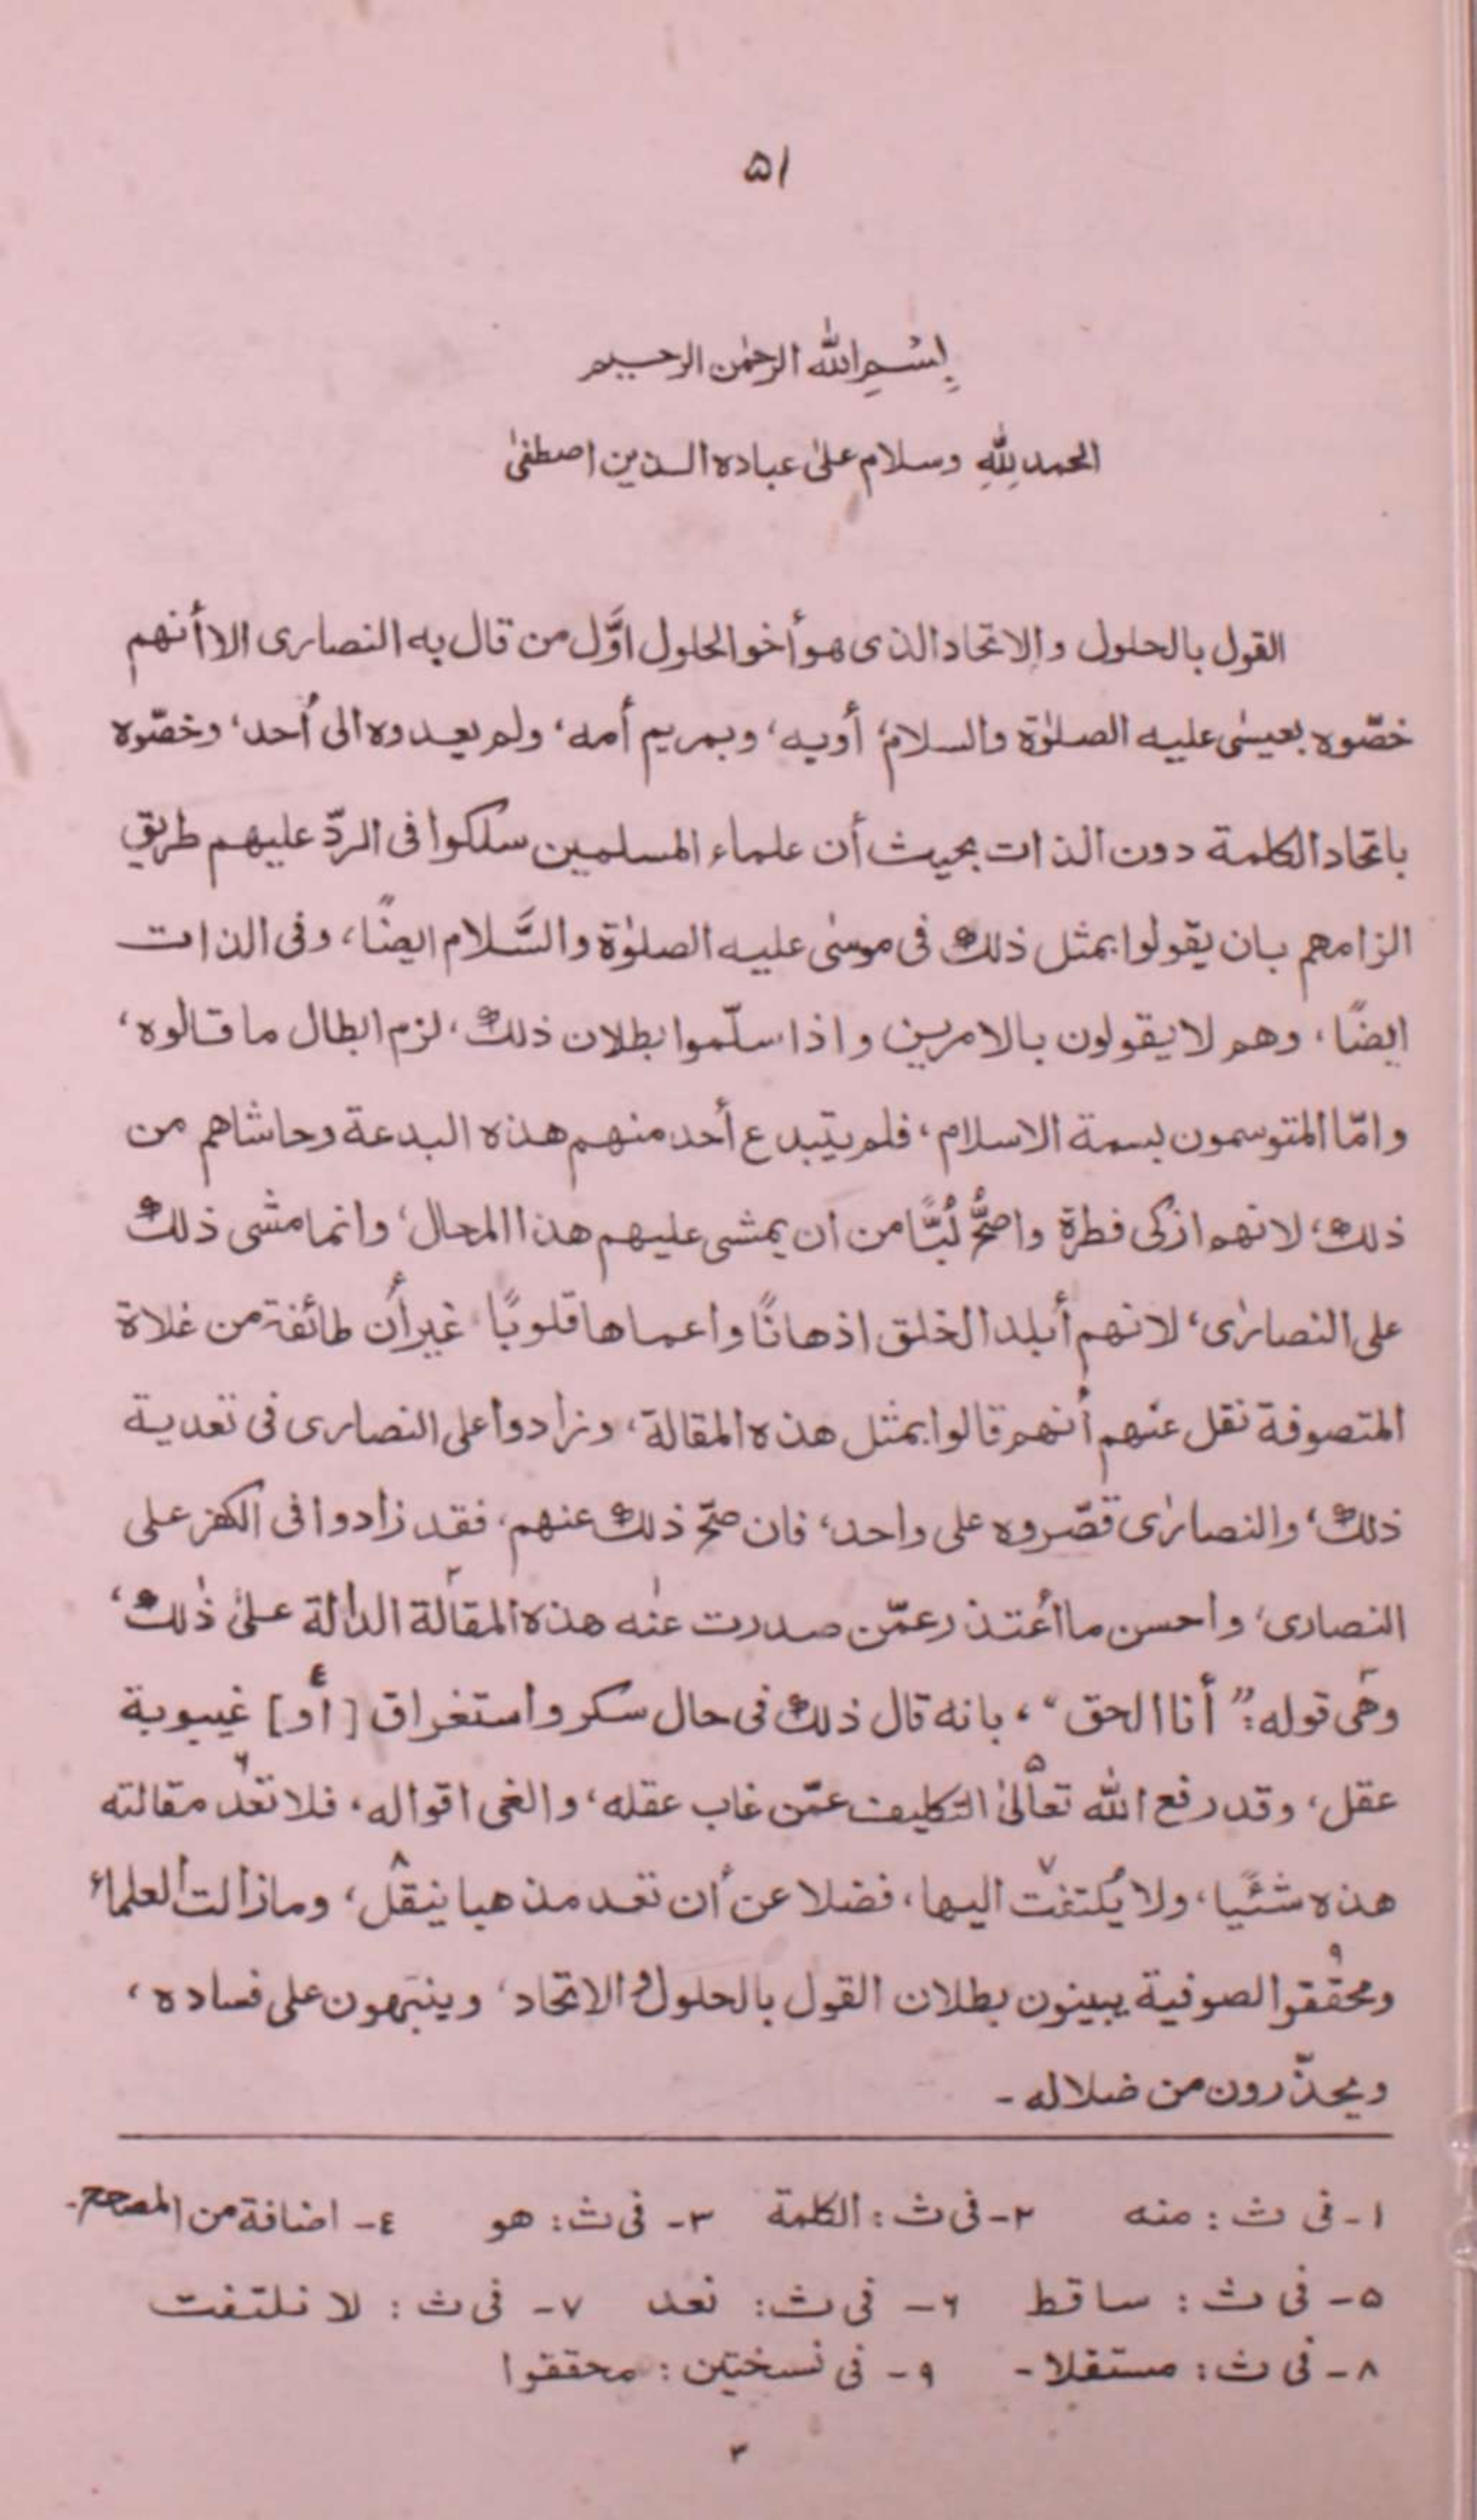 ۵۱
بِسْمِ اللّٰه الرحمٰن الرحيم
الحمد لِلّٰهِ وسلام علىٰ عباده الذين اصطفىٰ
القول بالحلول والاتحاد الذى هو أخو الحلول اوَّل من قال به النصارى الا أنهم
خصّوه بعيسٰى عليه الصلوٰة والسلام، أوبه، وبمريم أمه، ولم يعدوه الى أحد، وخصّوه
باتحاد الكلمة دون الذات بحيث أن علماء المسلمين سلكوا فى الردّ عليهم طريق
الزامهم بان يقولوا بمثل ذلك فى موسٰى عليه الصلوٰة والسَّلام ايضًا، وفى الذات
ايضًا، وهم لا يقولون بالامرين واذا سلّموا بطلان ذلك، لزم ابطال ما قالوه،
وامّا المتوسمون بسمة الاسلام، فلم يتبدع أحد منهم هذه البدعة وحاشاهم من
ذلك، لانهم ازكى فطرة واصحُّ لُبًّا من ان يمشى عليهم هذا المحال، وانما مشى ذلك
على النصارٰى، لانهم أبلد الخلق اذهانًا واعماها قلوبًا، غير أن طائفة من غلاة
المتصوفة نقل عنهم أنهم قالوا بمثل هذه المقالة، وزادوا على النصارى فى تعدية
ذلك، والنصارٰى قصّروه على واحد، فان صحّ ذلك عنهم، فقد زادوا فى الكفر على
النصارى، واحسن ما اعُتذر عمّن صدرت عنه١ هذه المقالة٢ الدالة علىٰ ذٰلك،
وهى٣ قوله: ”أنا الحق“، بانه قال ذلك فى حال سكر واستغراق [أو]٤ غيبوبة
عقل، وقد رفع اللّٰه تعالىٰ٥ التكليف عمّن غاب عقله، والغى اقواله، فلا تعدّ٦ مقالته
هذه شئًيا، ولا يُلتفت٧ اليها، فضلا عن أن تعد مذهبا ينقل٨، ومازالت العلماء
ومحققوا٩ الصوفية يبينون بطلان القول بالحلول والاتحاد، وينبّهون على فساده،
ويحذّرون من ضلاله۔
١- فى ث: منه ٢- فى ث: الكلمة ٣- فى ث: هو ٤- اضافة من المصحح۔
۵- فى ث: ساقط ۶- فى ث: نعد ٧- فى ث: لا نلتفت
٨- فى ث: مستقلا۔ ٩- فى نسختين: محققوا
٣